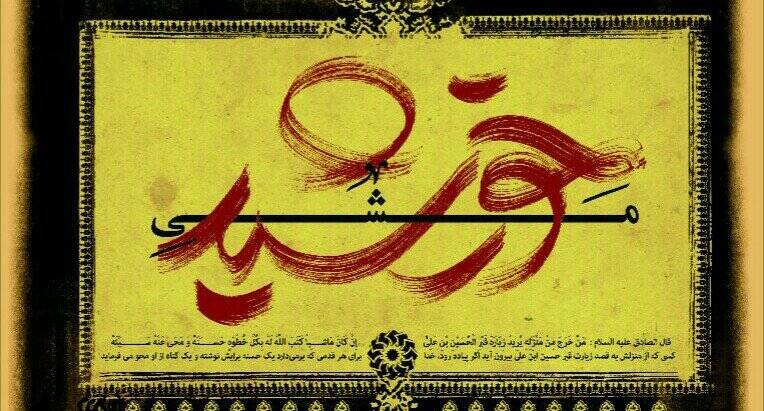 مَشیِ
خورشید
قال الصادق علیه السلام : مَن خَرجَ مِن مَنزِلِه یُریدُ زیارَةَ قَبرِ الحُسَینِ بنِ علیّ إن کانَ ماشیاً کَتَبَ اللّهُ لَه بِکُلّ خُطوَه حَسنَة و مَحی عَنهُ سَیّئَة
کسی که از منزلش به قصد زیارت قبر حسین ابن علی بیرون آید اگر پیاده رود، خدا برای هر قدمی که برمی‌دارد یک حسنه برایش نوشته و یک گناه از او محو می فرماید